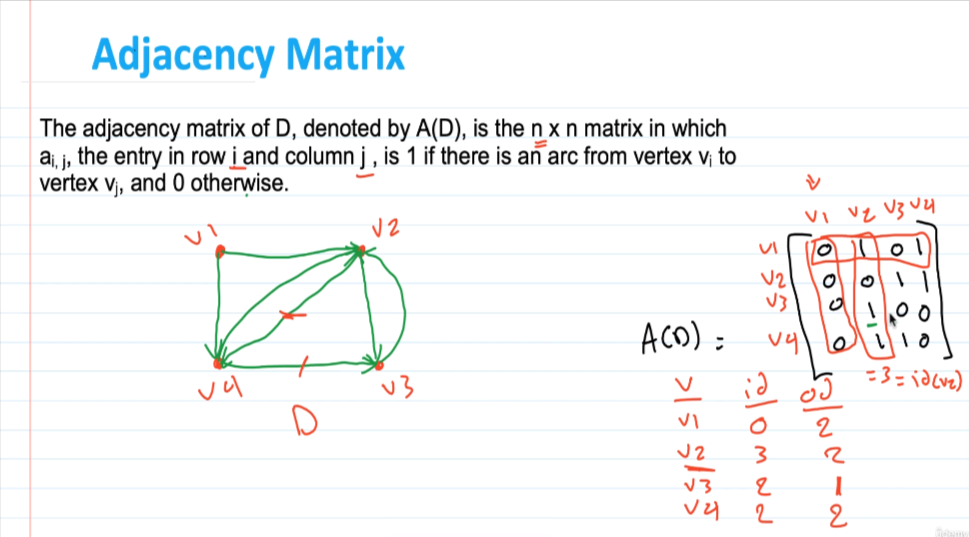 Adjacency Matrix
The adjacency matrix of D, denoted by A(D), is the n x n matrix in which
ai, j, the entry in row i and column j , is 1 if there is an arc from vertex vi to
vertex vj, and 0 otherwise.
v1 v2
v4 v3
D
v1 v2 v3 v4
v1 0 1 0 1
v2 0 0 1 1
v3 0 1 0 0
A(D) = v4 0 1 1 0
= 3 = id(v2)
v id od
v1 0 2
v2 3 2
v3 2 1
v4 2 2